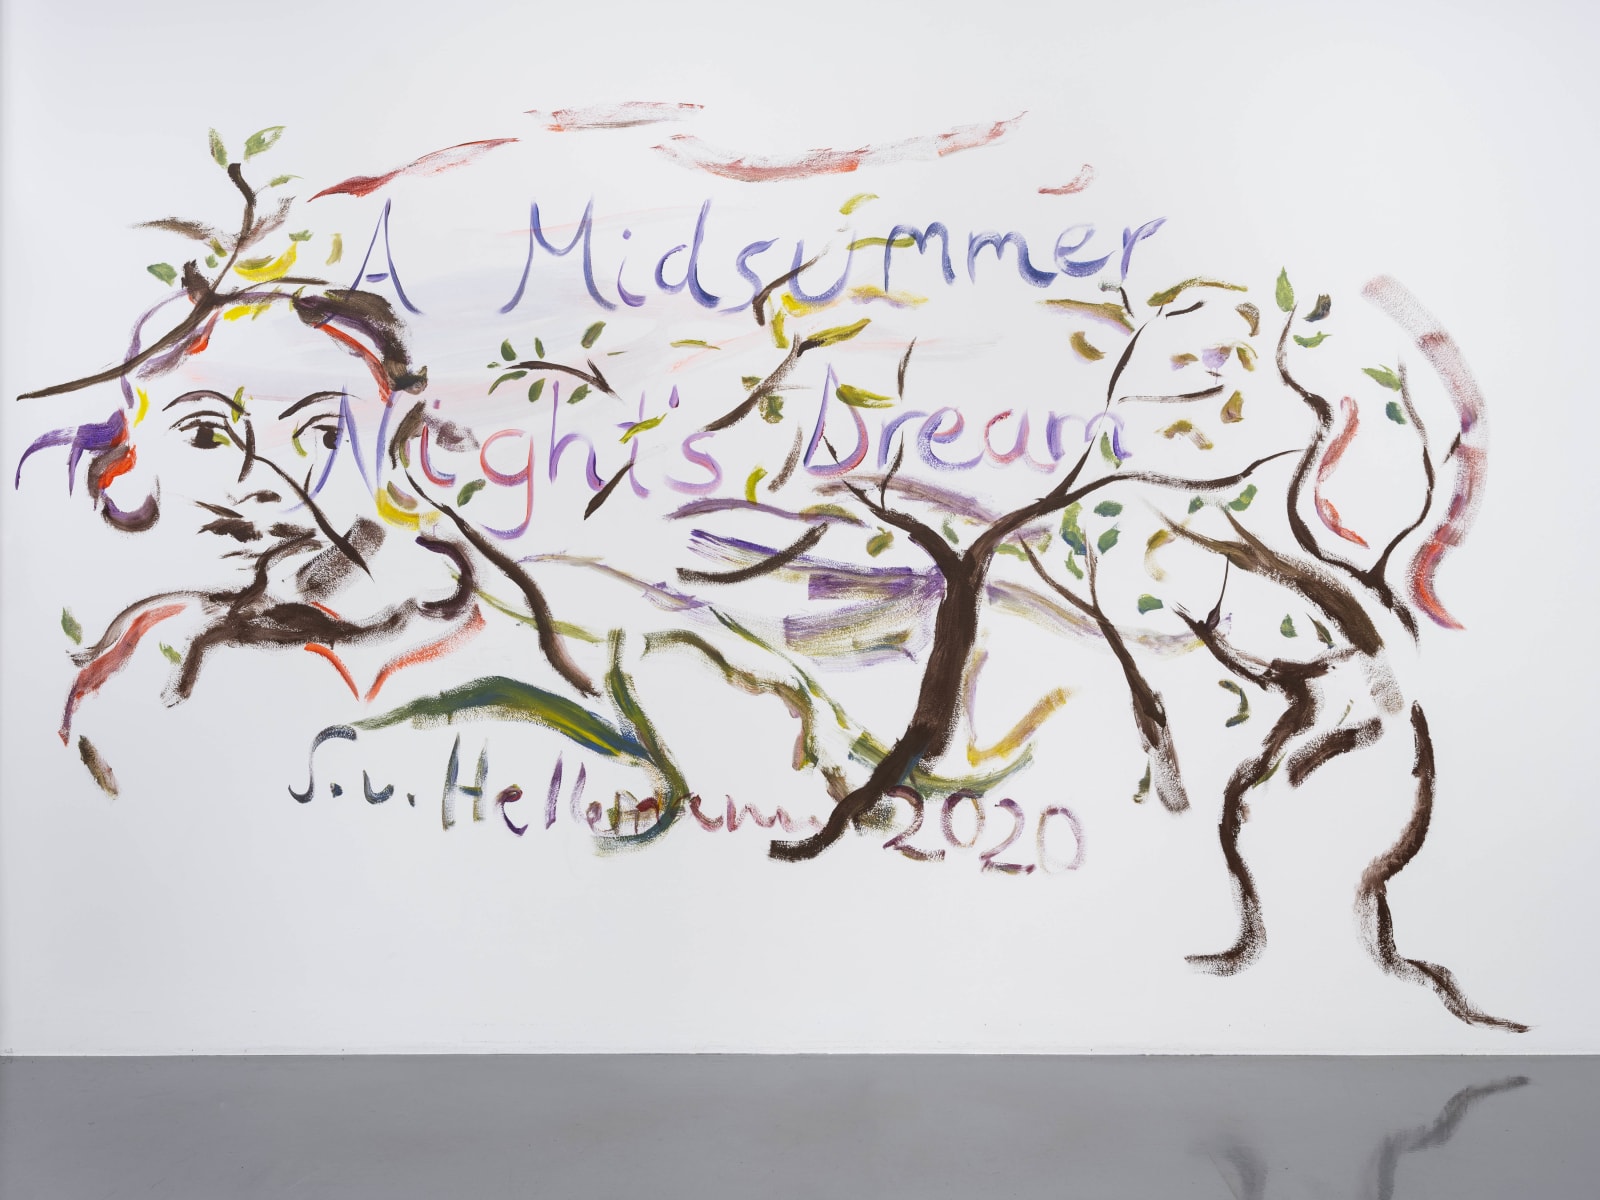 A Midsummer
Night's Dream
S.v. Hellemann 2020